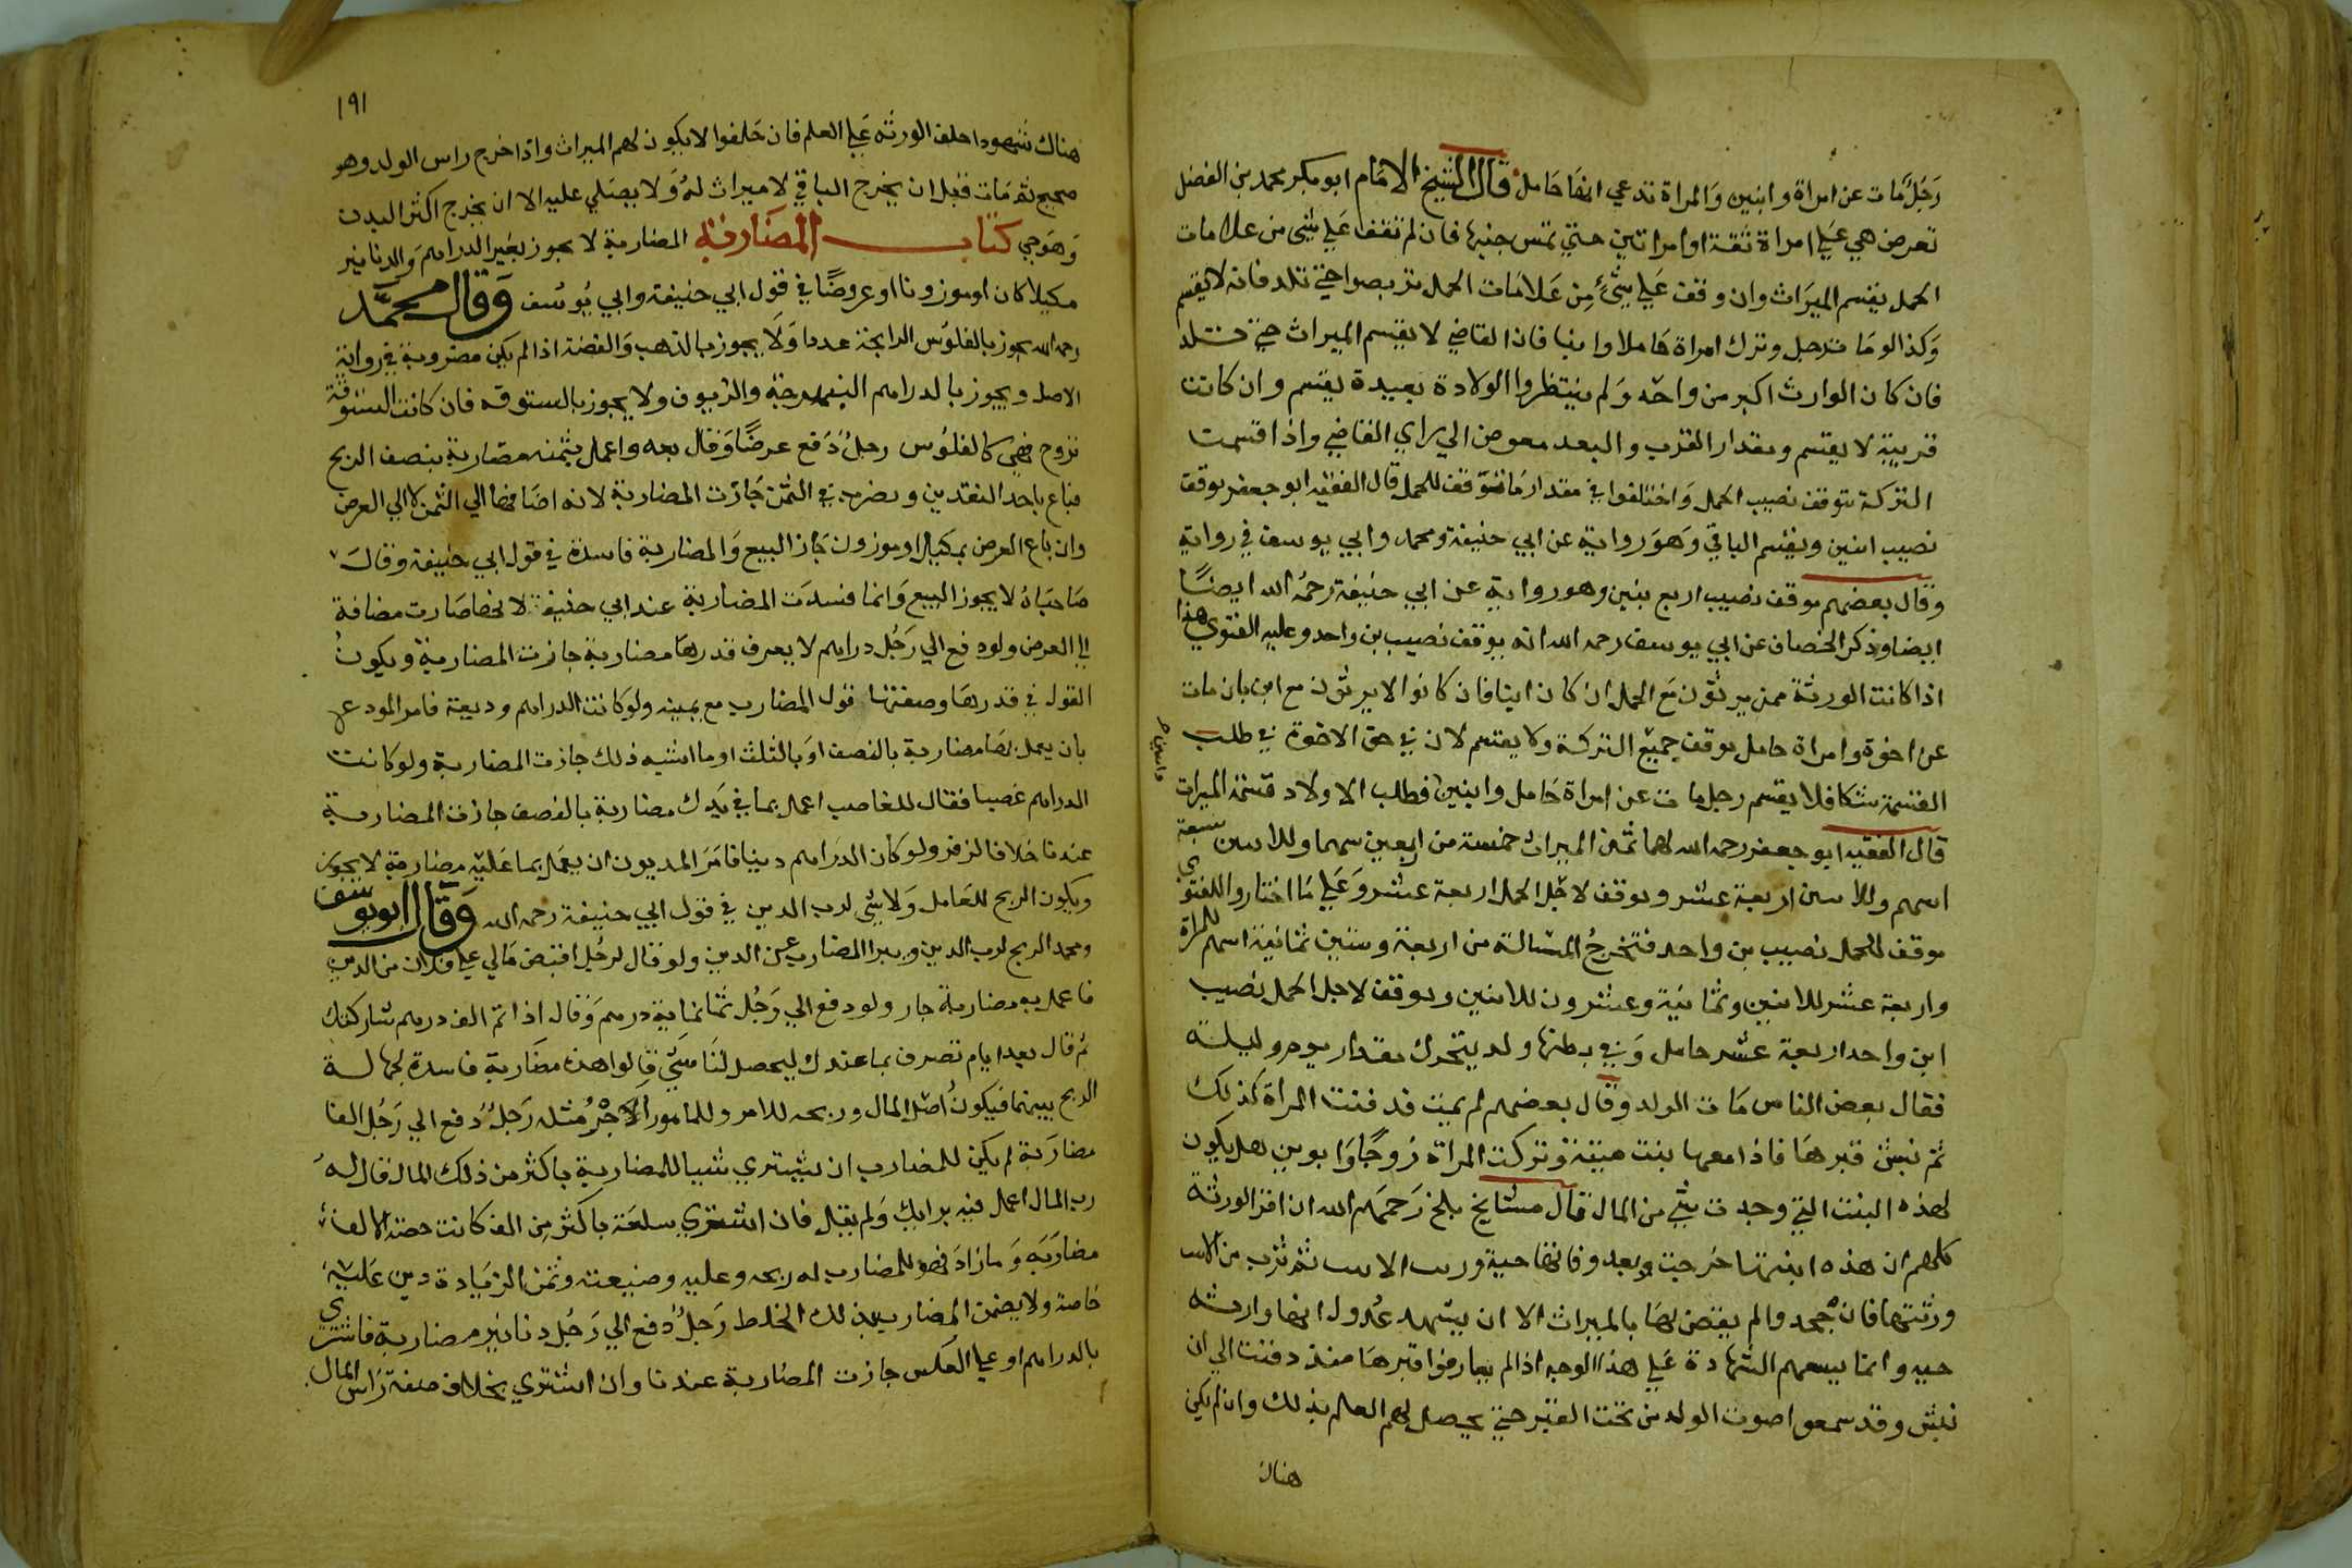 رَجُل مات عن امراة وابنين وَالمراة تدعي انها حَامل قال الشيخ الامَام ابو بكر محمد بن الفضل
تعرض هي عَلي امراة ثقة او امراتين حتي تمس جنبها فان لم تقف عَلي شئ من علامات
الحمل يقسم الميرَاث وان وقف عَلي شئ مِن عَلامَات الحمل تربصوا حتي تلد فانه لا يقسم
وَكذا لو مَات رجل وترك امراة حَاملا وابنا فان القاضي لا يقسم الميراث حتي تلد
فان كان الوارث اكبر من واحد وَلم ينتظروا الولادة بعيدة يقسم وان كانت
قريبة لا يقسم ومقدار القرب والبعد مفوض الي راي القاضي واذا قسمت
التركة يتوقف نصيب الحمل وَاختلفوا في مقدار مَا يتوقف للحمل قال الفقيه ابو جعفر يوقف
نصيب ابنين ويقسم الباقي وَهوَ رواية عن ابي حنيفة ومحمد وابي يوسف في رواية
وقال بعضهم يوقف نصيب اربع بنين وهو رواية عن ابي حنيفة رحمهُ الله ايضًا
ايضا وذكر الخصاف عن ابي يوسف رحمه الله انه يوقف نصيب بن واحد وعليه الفتوي هذا
اذا كانت الورثة ممن يرثون مَع الحمل ان كان ابنا فان كانوا لا يرثون مع ابن بان مات
عن اخوة وامراة حامل يوقف جميع التركة ولا يقسم لان في حق الاخوة في طلب
القسمة شكا فلا يقسم رجل مات عن امراة حَامل وابنين فطلب الاولاد قسمة الميراث
قال الفقيه ابو جعفر رحمه الله لهما ثمن الميراث خمسة من اربعين سهما وللابنين سبعة
اسهم وللابنين اربعة عشر ويوقف لاجل الحمل اربعة عشر وَعَلي مَا اختاروا للفتوي
يوقف للحمل نصيب بن واحد فتخرجُ المسالة من اربعة وستين ثمانية اسهم للمراة
واربعة عشر للابنين وثمانية وعشرون للابنين ويوقف لاجل الحمل نصيب
ابن واحد اربعة عشر حامل وَفي بطنها ولد يتحرك مقدار يوم وليلة
فقال بعض الناس مَات الولد وقال بعضهم لم يمت فدفنت المراة كذلك
ثم نبش قبرهَا فاذا معها بنت ميتة وتركت المراة زوجًا وَابوين هل يكون
لهذه البنت التي وجدت شئ من المال قال مشايخ بلخ رَحمَهم الله ان اقر الورثة
كلهم ان هذه ابنتها خرجت بعد وفاتها حية ورث الاب ثم ترث من الاب
ورثتها فان جحدوا لم يقض لهَا بالميراث الا ان يشهد عُدول انها وارثه
حيه وانما يسعهم الشهادة عَلي هذا الوجه اذا لم يفارقوا قبرهَا منذ دفنت الي ان
نبش وقد سمعوا صوت الولد من تحت القبر حتي يحصل لهم العلم بذلك وان لم يكن
هناك
١٩١
هناك شهودا حلف الورثه عَلي العلم فان حَلفوا لا يكون لهم الميراث واذا خرج راس الولد وهو
صحيح ثم مَات قبل ان يخرج الباقي لا ميراث لهُ وَلا يصَلي عليه الا ان يخرج اكثر البدن
وَهوَ حي كتاب المضَاربة المضاربة لا يجوز بغير الدراهم وَالدنانير
مكيلا كان او موزونا او عروضًا في قول ابي حنيفة وابي يُوسُف وَقال محمَّد
رحمه الله يجوز بالفلوس الرايجة عددا وَلَا يجوز بالذهب وَالفضة اذا لم يكن مضروبة في رواية
الاصل ويجوز بالدراهم النبهرجة والزيوف ولا يجوز بالستوقه فان كانت الستوقة
تروج فهي كالفلوُس رجلُ دَفع عرضًا وَقال بعه واعمل بثمنه مضاربة بنصف الربح
فباع باحد النقدين وتصرف في الثمن جَازت المضاربة لانه اضَافها الي الثمن لا الي العرض
وان باع العرض بمكيل او موزون جَاز البيع وَالمضاربة فاسدة في قول ابي حنيفة وقالَ
صَاحبَاهُ لا يجوز البيع وَانما فسدَت المضاربة عند ابي حنيفة لانها صَارت مضافة
الي العرض ولو دفع الي رَجُل دراهم لا يعرف قدرهَا مضاربة جازت المضاربة ويكونُ
القول في قدرهَا وصفتها قول المضارب مع يمينه ولو كانت الدراهم وديعة فامر المودع
بان يعمل بهَا مضاربة بالنصف اوَ بالثلث او ما اشبه ذلك جازت المضاربة ولو كانت
الدراهم غصبا فقال للغاصب اعمل بما في يَدك مضاربة بالنصف جازت المضاربة
عندنا خلافا لزفر ولو كان الدرَاهم دينا فامَرَ المديون ان يعمَل بما عَليْه مضاربة لا يجوز
ويكون الربح للعَامل وَلا شئ لرب الدين في قول ابي حنيفة رحمه الله وَقال ابو يوسف
ومحمد الربح لرب الدين ويبرا المضارب عن الدين ولو قال لرجُل اقبض مَالي علي فلان من الدين
فاعمل به مضاربة جاز ولو دفع الي رَجُل ثمانماية درهم وَقال اذا تم الف درهم شاركتك
ثم قال بعد ايام تصرف بما عندك ليحصل لنَا شئ قالوا هذه مضَاربة فاسدة لجهالة
الربح بينهما فيكونُ اصْل المال وربحه للامر وللمامور اَلاجْرُ مُثله رَجلُ دَفع الي رَجُل الفا
مضارَبة لم يكن للمضارب ان يشتري شيا للمضاربة باكثر من ذلك المال قال لهُ
رب المال اعمل فيه برايك وَلم يقل فان اشتري سلعَة باكثر مِن الف كانت حصة الالف
مضارَبَة وَمازادَ فهو للمضارب له ربحه وعليه وضيعته وثمن الزيَادة دين عَليْه
خاصة ولا يضمن المضارب بذلك الخلط رَجلُ دَفع الي رَجُل دنانير مضاربة فاشتري
بالدراهم او علي العكس جازت المضَاربة عندنا وان اشتري بخلاف صفة رَاس المال